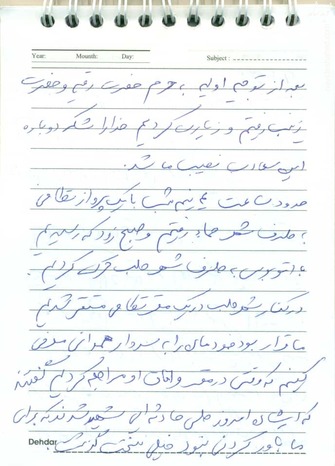 Year: Mounth: Day: Subject:
بعد از توجیه اولیه به حرم حضرت رقیه و حضرت
زینب رفتیم و زیارت کردیم خدا را شکر دوباره
این سعادت نصیب ما شد.
حدود ساعت نیم شب با یک پرواز نظامی
به طرف شهر حماء رفتیم و صبح زود که رسیدیم
با اتوبوس به طرف شهر حلب حرکت کردیم.
در کنار شهر حلب در یک مقر نظامی مستقر شدیم
ما قرار بود خودمان را به سردار همدانی معرفی
کنیم که وقتی در مقر و اقامت او مراجعه کردیم گفتند
که ایشان امروز طی حادثه ای شهید شدند که برای
ما باور کردنی نبود خیلی سخت گذشت
Dehdar